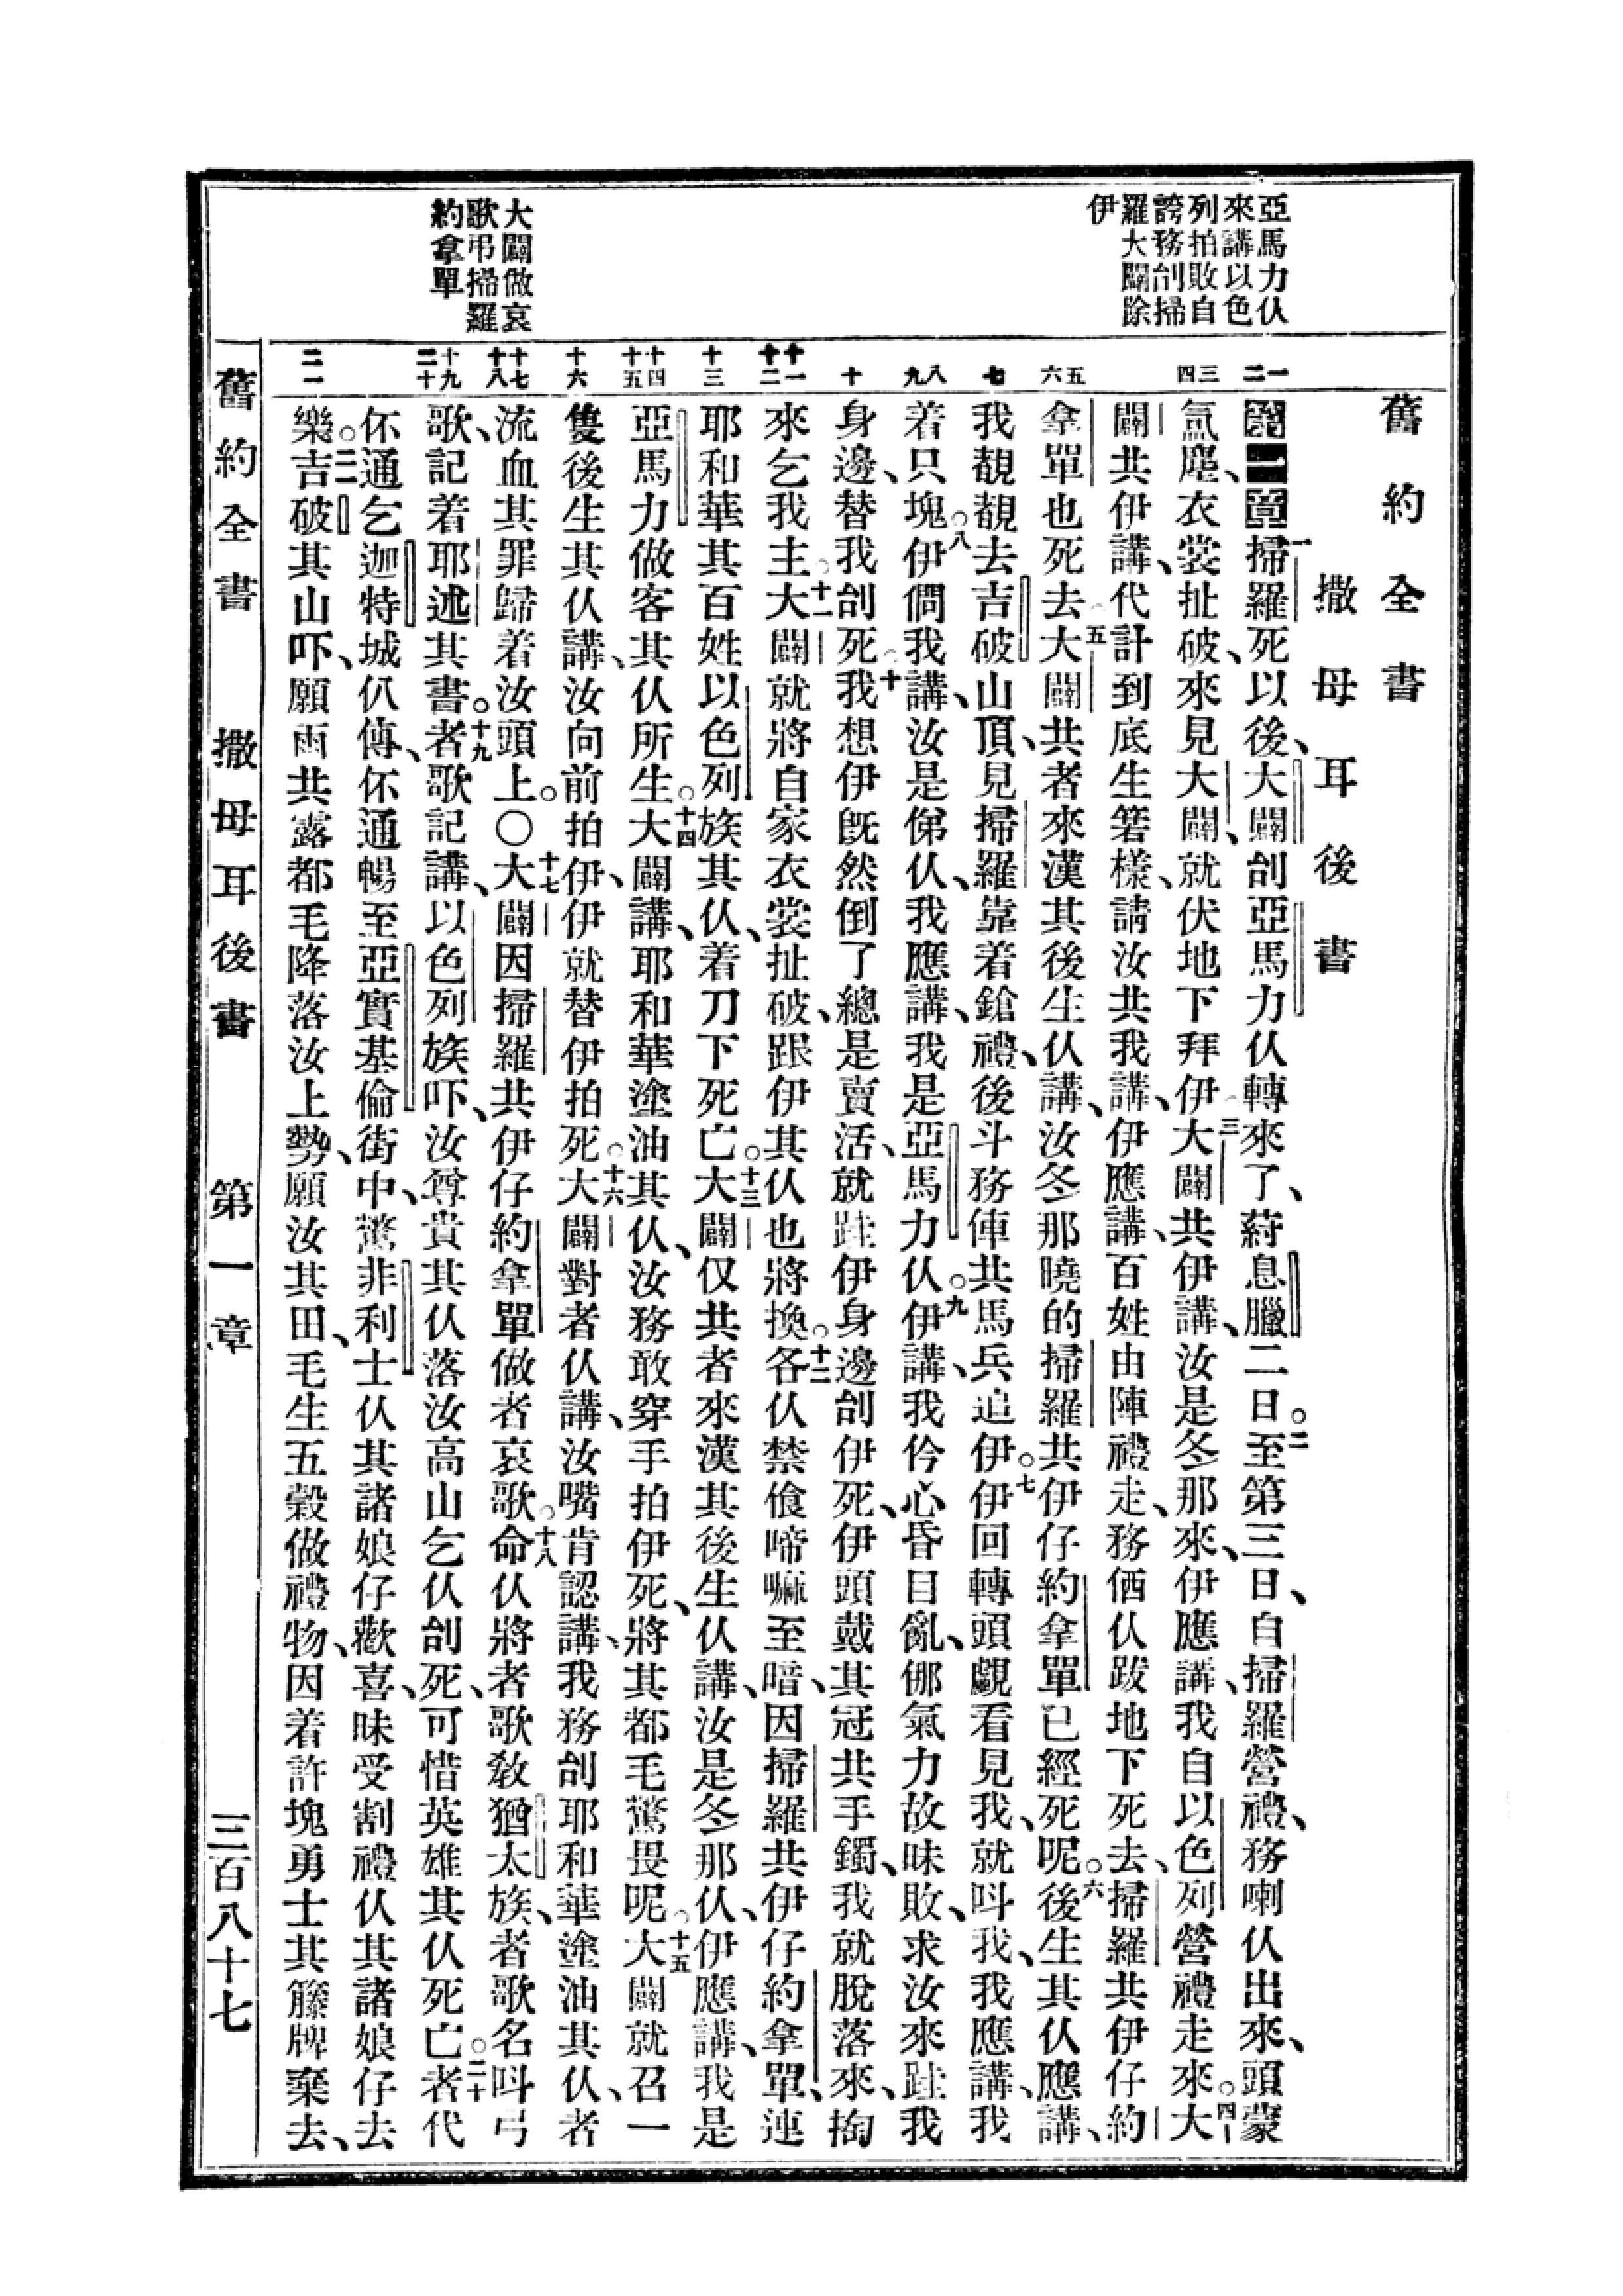 亞馬力仈
來講以色
列拍敗自
誇務刣掃
羅大闢除
伊
大闢做哀
歌弔掃羅
約拿單
舊約全書
撒母耳後書
一二
第一章一掃羅死以後、大闢刣亞馬力仈轉來了、蒞息臘二日。二至第三日、自掃羅營禮、務喇仈出來、頭蒙
三四
氲塵、衣裳扯破、來見大闢、就伏地下拜伊。三大闢共伊講、汝是冬那來、伊應講、我自以色列營禮走來。四大
闢共伊講、代計到底生箬樣、請汝共我講、伊應講、百姓由陣禮走、務価仈跋地下死去、掃羅共伊仔約
五六
拿單也死去。五大闢共者來漢其後生仈講、汝冬那曉的掃羅共伊仔約拿單已經死呢。六後生其仈應講、
七
我覩覩去吉破山頂、見掃羅靠着鎗禮、後斗務俥共馬兵追伊。七伊回轉頭覷看見我、就呌我、我應講、我
八九
着只塊。八伊僩我講、汝是俤仈、我應講、我是亞馬力仈。九伊講、我伶心昏目亂、㑚氣力故昧敗、求汝來跬我
十
身邊、替我刣死。十我想伊旣然倒了、總是賣活、就跬伊身邊刣伊死、伊頭戴其冠共手鐲、我就脫落來、掏
十一十二
來乞我主。十一大闢就將自家衣裳扯破、跟伊其仈也將換。十二各仈禁飡啼嘛至暗、因掃羅共伊仔約拿單、連
十三
耶和華其百姓以色列族其仈、着刀下死亡。十三大闢仅共者來漢其後生仈講、汝是冬那仈、伊應講、我是
十四十五
亞馬力做客其仈所生。十四大闢講、耶和華塗油其仈、汝務敢穿手拍伊死、將其都毛驚畏呢。十五大闢就召一
十六
隻後生其仈講、汝向前拍伊、伊就替伊拍死。十六大闢對者仈講、汝嘴肯認講、我務刣耶和華塗油其仈、者
十七十八
流血其罪歸着汝頭上。〇十七大闢因掃羅共伊仔約拿單做者哀歌。十八命仈將者歌敎猶太族、者歌名呌弓
十九二十
歌、記着耶述其書。十九者歌記講、以色列族吓、汝尊貴其仈落汝高山乞仈刣死、可惜英雄其仈死亡。二十者代
伓通乞迦特城仈傳、伓通暢至亞實基倫街中、驚非利士仈其諸娘仔歡喜、昧受割禮仈其諸娘仔去
二一
樂。二一吉破其山吓、願雨共露都毛降落汝上勢、願汝其田、毛生五穀做禮物、因着許塊勇士其籐牌棄去、
舊約全書 撒母耳後書 第一章 三百八十七